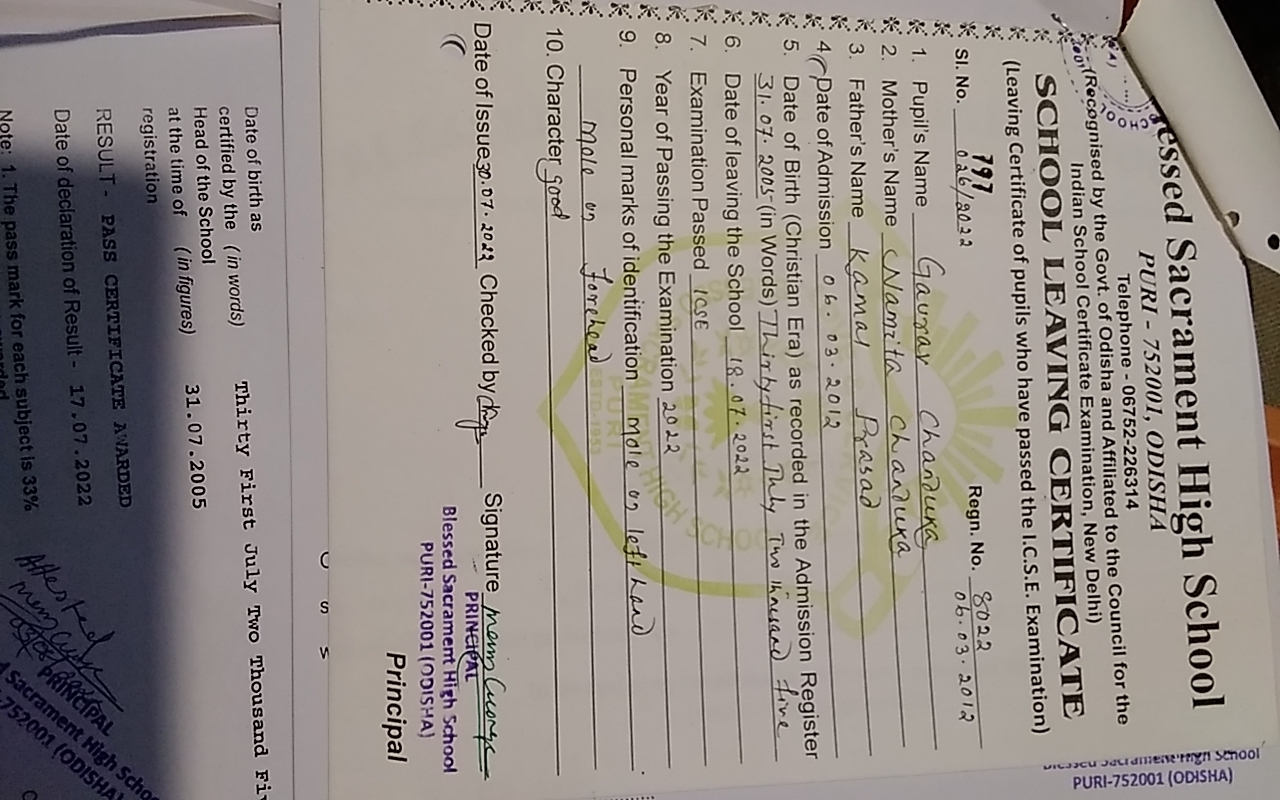 essed Sacrament High School
PURI - 752001, ODISHA
Telephone - 06752-226314
(Recognised by the Govt. of Odisha and Affiliated to the Council for the
Indian School Certificate Examination, New Delhi)
SCHOOL LEAVING CERTIFICATE
(Leaving Certificate of pupils who have passed the I.C.S.E. Examination)
797
Sl. No. 026/2022 Regn. No. 8022
06.03.2012
1. Pupil's Name Gaurav Chanduka
2. Mother's Name Namita Chanduka
3. Father's Name Kamal Prasad
4. Date of Admission 06.03.2012
5. Date of Birth (Christian Era) as recorded in the Admission Register
31.07.2005 (in Words) Thirty first July Two thousand five
6. Date of leaving the School 18.07.2022
7. Examination Passed ICSE
8. Year of Passing the Examination 2022
9. Personal marks of identification Mole on left hand
Mole on Forehead
10. Character good
Date of Issue 30.07.2022 Checked by Signature
PRINCIPAL
Blessed Sacrament High School
PURI-752001 (ODISHA)
Principal
Blessed Sacrament High School
PURI-752001 (ODISHA)
Date of birth as
certified by the (in words) Thirty First July Two Thousand Fiv
Head of the School
at the time of (in figures) 31.07.2005
registration
RESULT - PASS CERTIFICATE AWARDED
Date of declaration of Result - 17.07.2022
Note: 1. The pass mark for each subject is 33%
Attested
PRINCIPAL
d Sacrament High Schoo
-752001 (ODISHA)